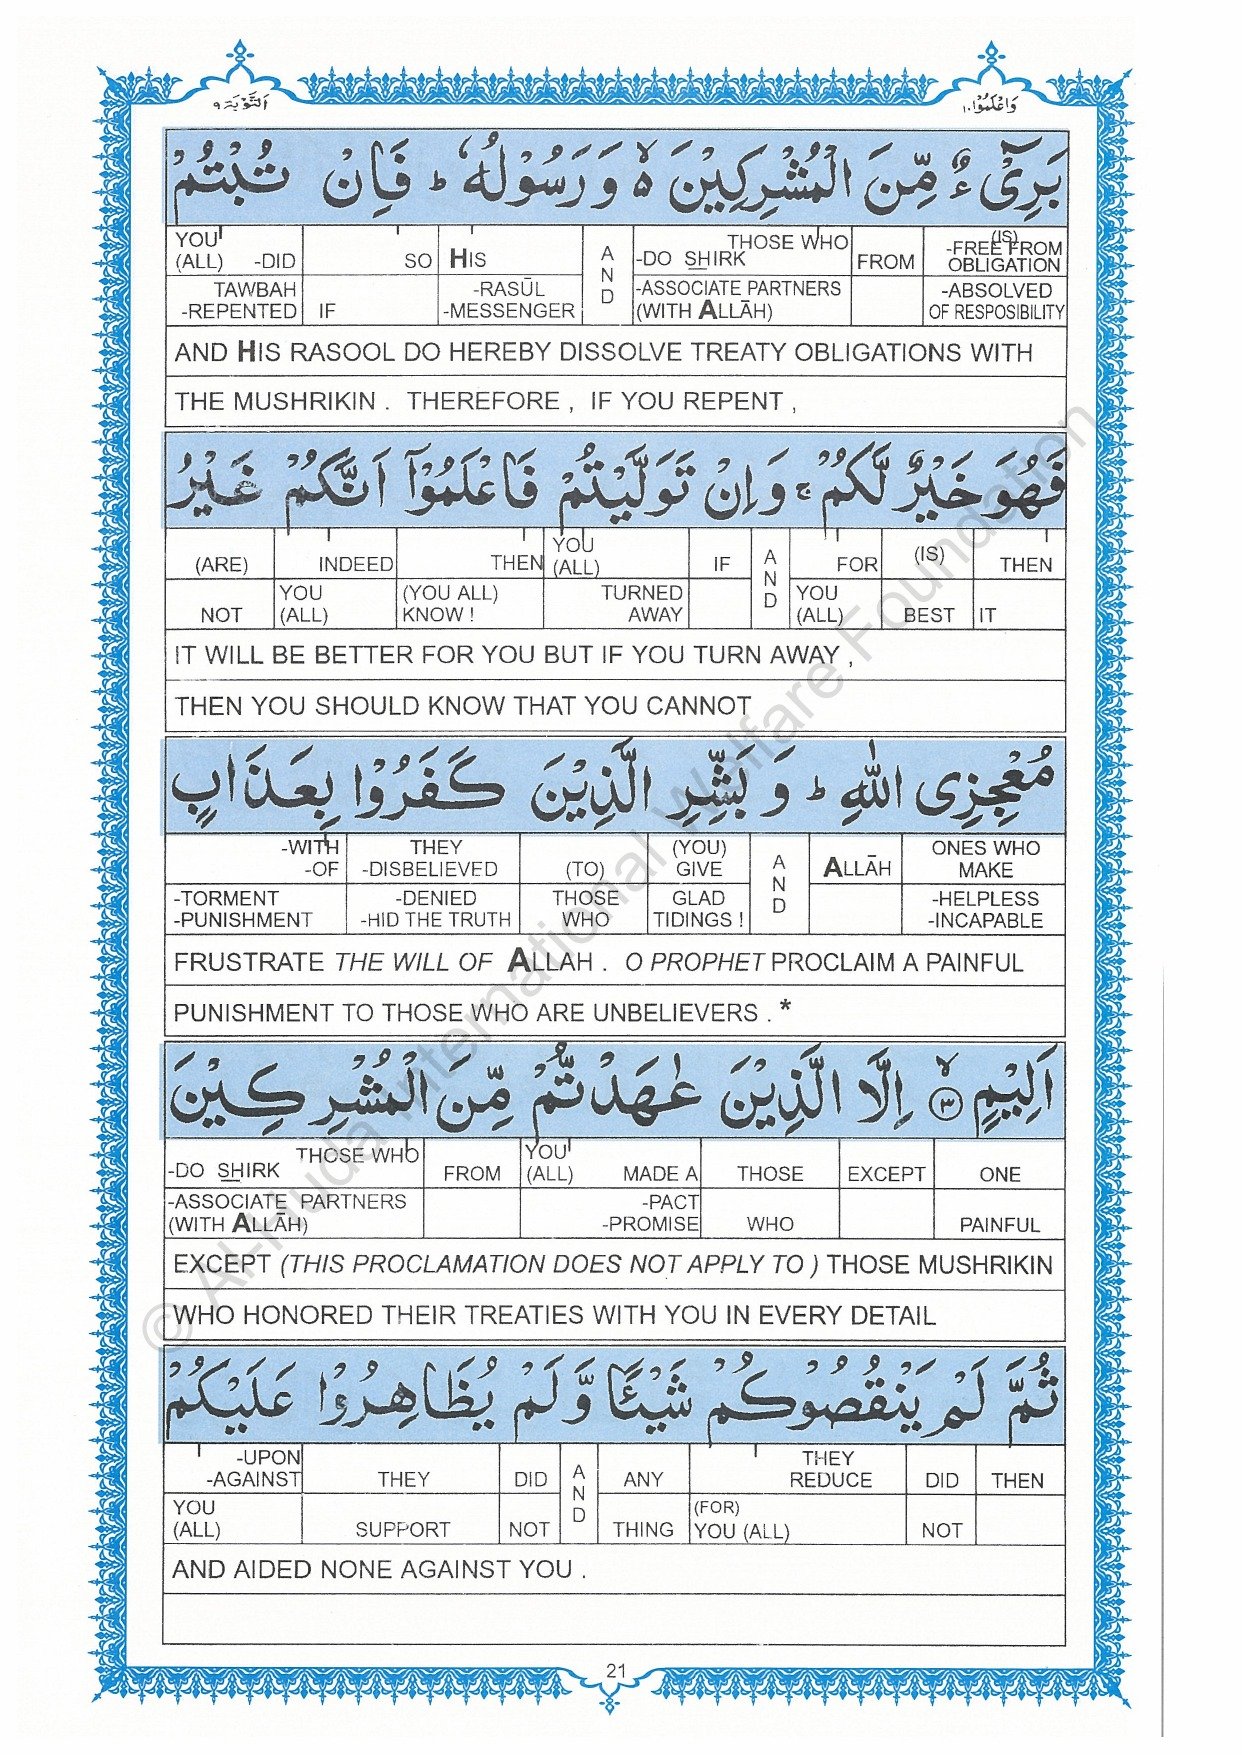 اَلتَّوْبَة ٩ وَاعْلَمُوْا ١٠
بَرِیْٓءٌ مِّنَ الْمُشْرِكِیْنَ ۙ۬ وَ رَسُوْلُهٗ ؕ فَاِنْ تُبْتُمْ
YOU (ALL) -DID SO HIS AND THOSE WHO -DO SHIRK FROM (IS) -FREE FROM OBLIGATION
TAWBAH -REPENTED IF -RASŪL -MESSENGER -ASSOCIATE PARTNERS (WITH ALLĀH) -ABSOLVED OF RESPOSIBILITY
AND HIS RASOOL DO HEREBY DISSOLVE TREATY OBLIGATIONS WITH
THE MUSHRIKIN . THEREFORE , IF YOU REPENT ,
فَهُوَ خَیْرٌ لَّكُمْ ۚ وَ اِنْ تَوَلَّیْتُمْ فَاعْلَمُوْۤا اَنَّكُمْ غَیْرُ
(ARE) INDEED THEN YOU (ALL) IF AND FOR (IS) THEN
NOT YOU (ALL) (YOU ALL) KNOW ! TURNED AWAY YOU (ALL) BEST IT
IT WILL BE BETTER FOR YOU BUT IF YOU TURN AWAY ,
THEN YOU SHOULD KNOW THAT YOU CANNOT
مُعْجِزِی اللّٰهِ ؕ وَ بَشِّرِ الَّذِیْنَ كَفَرُوْا بِعَذَابٍ
-WITH -OF THEY -DISBELIEVED (TO) (YOU) GIVE AND ALLĀH ONES WHO MAKE
-TORMENT -PUNISHMENT -DENIED -HID THE TRUTH THOSE WHO GLAD TIDINGS ! -HELPLESS -INCAPABLE
FRUSTRATE THE WILL OF ALLAH . O PROPHET PROCLAIM A PAINFUL
PUNISHMENT TO THOSE WHO ARE UNBELIEVERS . *
اَلِیْمٍ ۙ﴿۳﴾ اِلَّا الَّذِیْنَ عٰهَدْتُّمْ مِّنَ الْمُشْرِكِیْنَ
THOSE WHO -DO SHIRK FROM YOU (ALL) MADE A THOSE EXCEPT ONE
-ASSOCIATE PARTNERS (WITH ALLĀH) -PACT -PROMISE WHO PAINFUL
EXCEPT (THIS PROCLAMATION DOES NOT APPLY TO ) THOSE MUSHRIKIN
WHO HONORED THEIR TREATIES WITH YOU IN EVERY DETAIL
ثُمَّ لَمْ یَنْقُصُوْكُمْ شَیْـًٔا وَّ لَمْ یُظَاهِرُوْا عَلَیْكُمْ
-UPON -AGAINST THEY DID AND ANY THEY REDUCE DID THEN
YOU (ALL) SUPPORT NOT THING (FOR) YOU (ALL) NOT
AND AIDED NONE AGAINST YOU .
21
© Al-Huda International Welfare Foundation